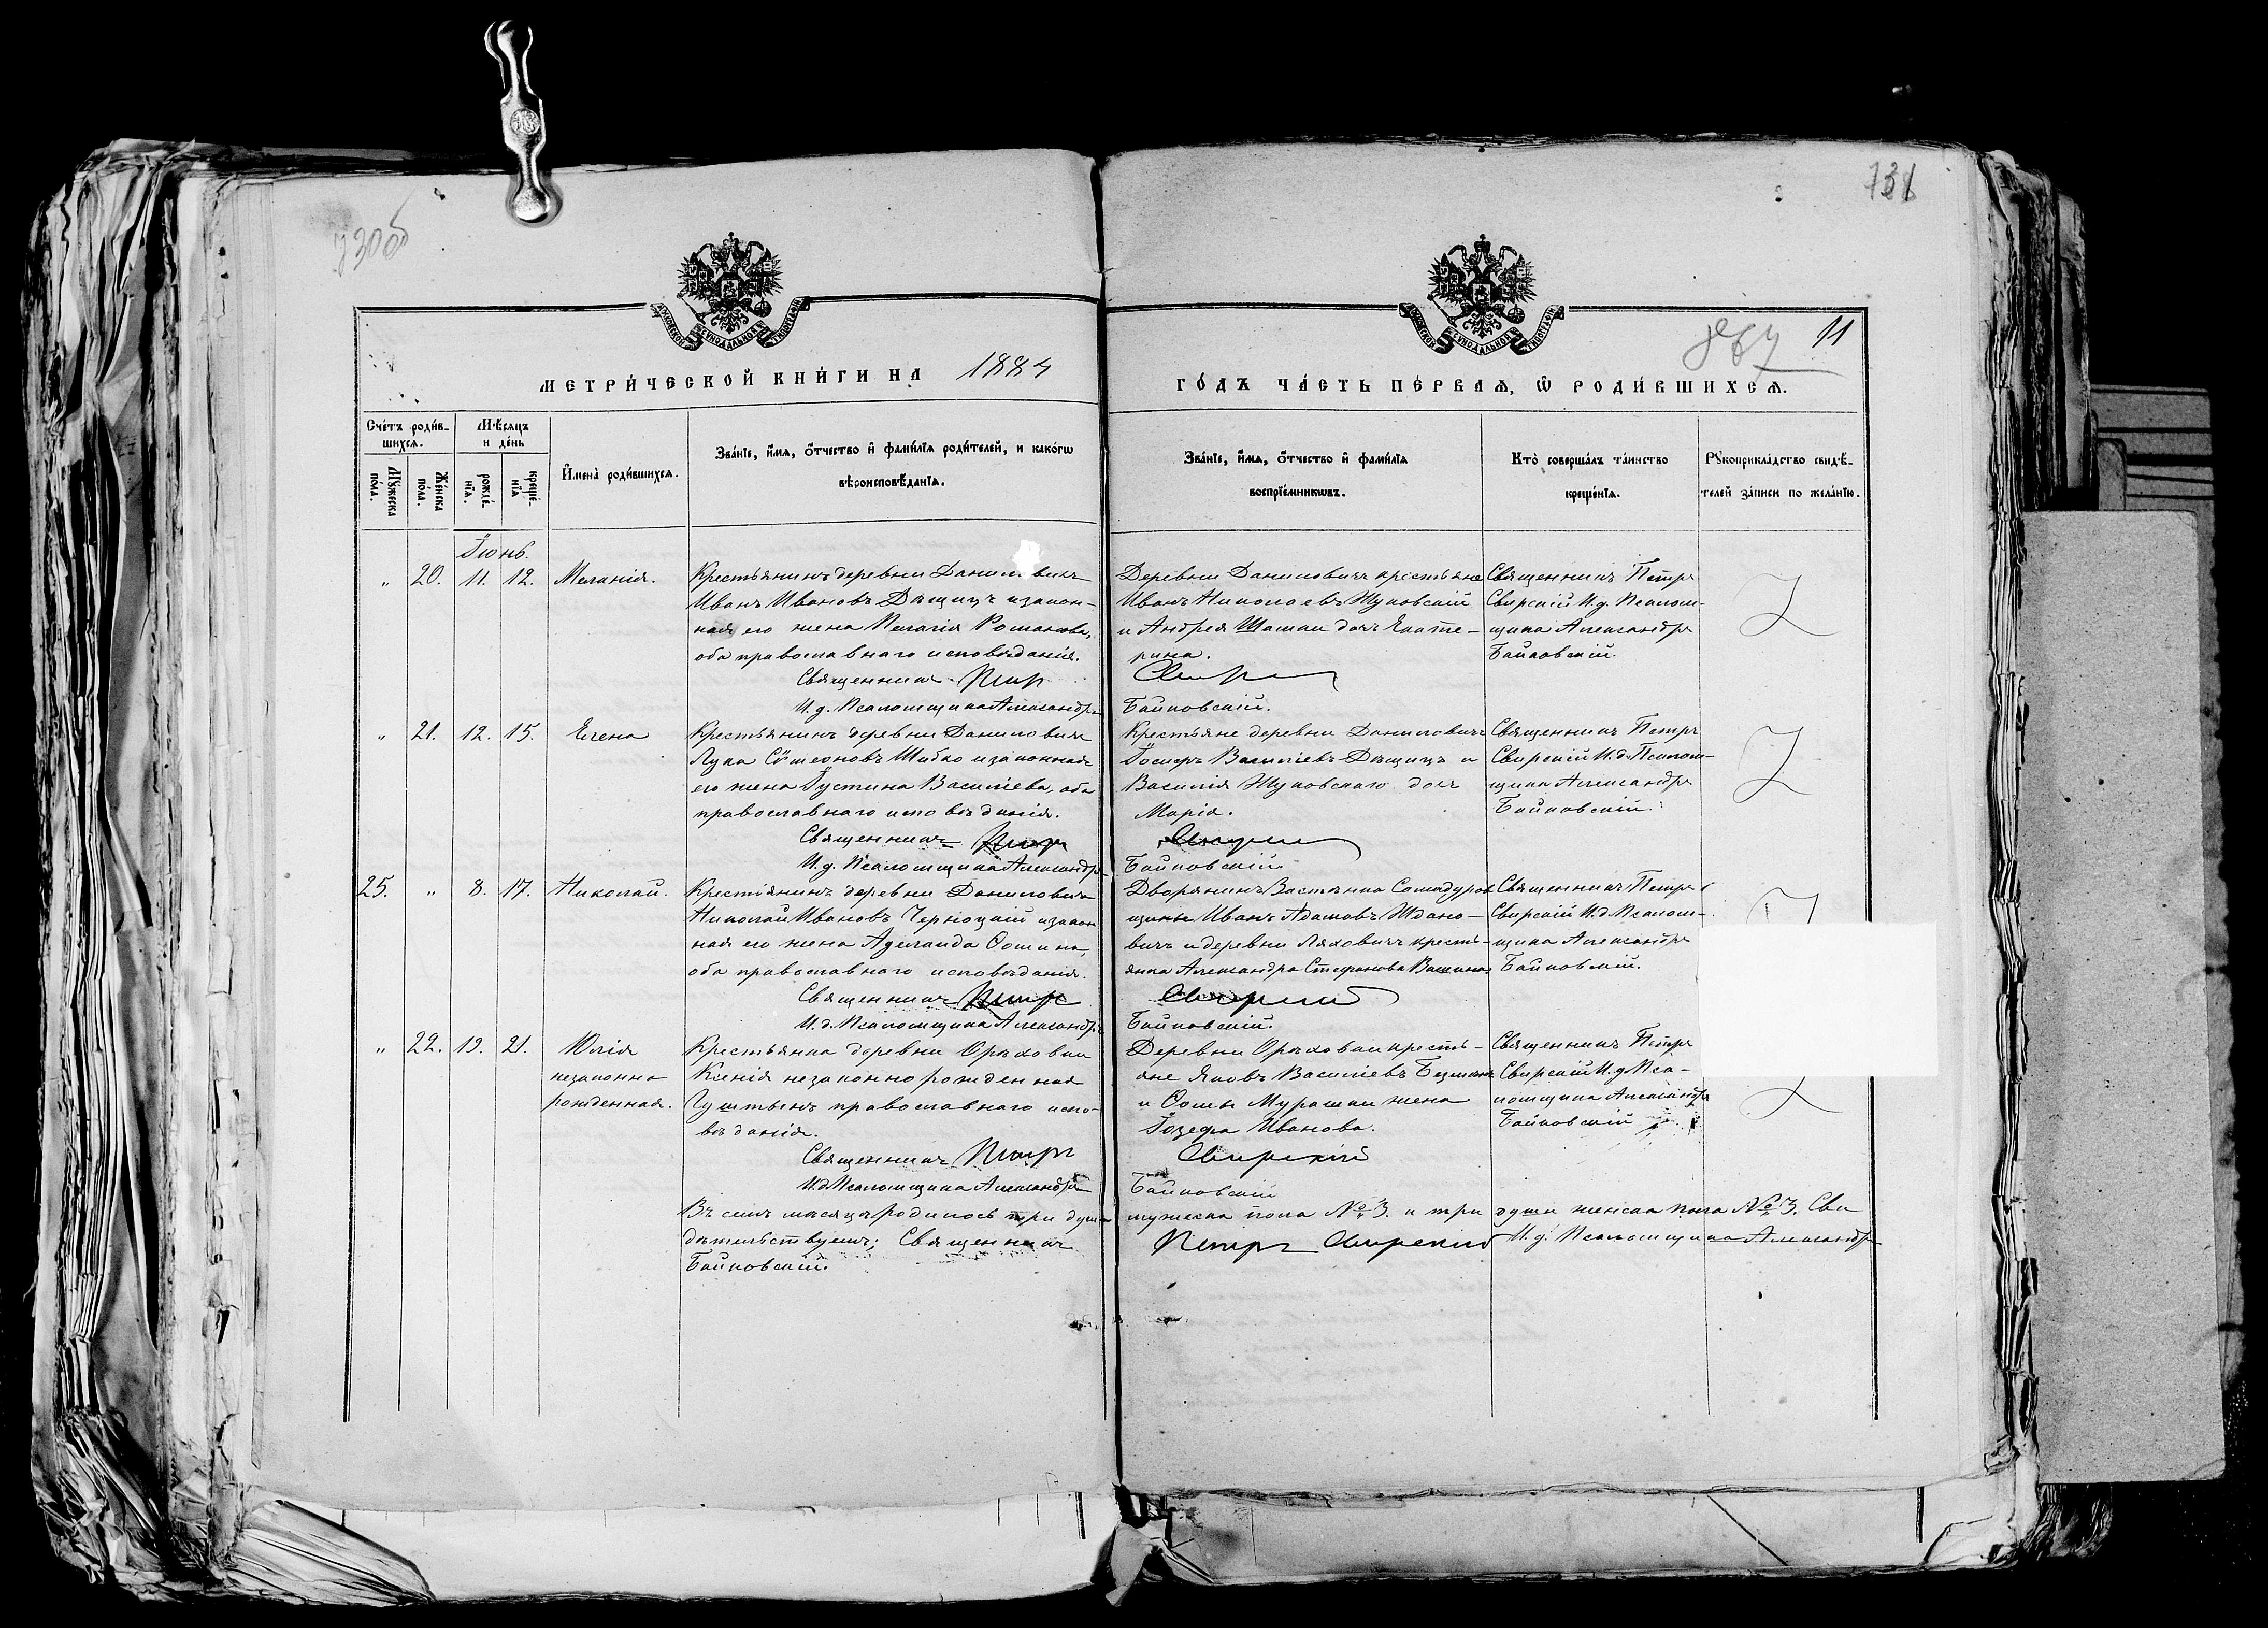 730об
731
11
МЕТРИ́ЧЕСКОЙ КНИ́ГИ НА 1884
ГО́ДЪ ЧА́СТЬ ПЕ́РВАѦ, Ѡ РОДИ́ВШИХСѦ.
Счётъ роди́в-
шихсѧ.
Мужеска по́ла.
Же́нска по́ла.
Мѣ́сѧцъ
и де́нь
рожде́нїѧ.
креще́нїѧ
Имена̀ роди́вшихсѧ.
Зва́нїе, и́мѧ, о́тчество и фами́лїѧ роди́телей, и како́гѡ
вѣроисповѣ́данїѧ.
Зва́нїе, и́мѧ, о́тчество и фами́лїѧ
воспрїе́мникѡвъ.
Кто̀ соверша́лъ та́инство
креще́нїѧ.
Рукоприкла́дство свидѣ́-
телей за́писи по жела́нїю.
Іюнь.
„ 20. 11. 12. Меланія.
Крестьянинъ деревни Данилович
Иванъ Ивановъ Дѣщицъ и закон-
ная его жена Пелагія Романова,
оба православнаго исповѣданія.
Священникъ Петръ
И. д. Псаломщика Александръ
Деревни Даниловичъ крестьяне
Иванъ Николаевъ Жуковскій
и Андрея Шашки дочь Екате-
рина.
Свирскій
Байковскій.
Священникъ Петръ
Свирскій И. д. Псалом-
щика Александръ
Байковскій.
„ 21. 12. 15. Елена
Крестьянинъ деревни Даниловичъ
Лука Сѵмеоновъ Шибко и законная
его жена Іустина Васильева, оба
православнаго исповѣданія.
Священникъ Петръ
И. д. Псаломщика Александръ
Крестьяне деревни Даниловичъ
Іосифъ Васильевъ Дѣщицъ и
Василія Жуковскаго дочь
Марія.
Свирскій
Байковскій.
Священникъ Петръ
Свирскій И. д. Псалом-
щика Александръ
Байковскій.
25. „ 8. 17. Николай.
Крестьянинъ деревни Даниловичъ
Николай Ивановъ Черноцкій и закон
ная его жена Аделаида Ѳомина,
оба православнаго исповѣданія.
Священникъ Петръ
И. д. Псаломщика Александръ
Дворянинъ
Иванъ Адамовъ Ждано-
вичъ и деревни Ляховичъ кресть-
янка Александра Стефанова
Свирскій
Байковскій.
Священникъ Петръ
Свирскій И. д. Псалом-
щика Александръ
Байковскій.
„ 22. 19. 21. Юлія
незаконно
рожденная.
Крестьянка деревни Орѣховки
Ксенія незаконнорожденная
православнаго испо-
вѣданія.
Священникъ Петръ
И. д. Псаломщика Александръ
Деревни Орѣховки кресть-
яне Яковъ Васильевъ
и Ѳомы Мурашки жена
Іозефа Иванова.
Свирскій
Байковскій
Священникъ Петръ
Свирскій И. д. Пса-
ломщика Александръ
Байковскій
Въ семъ мѣсяцѣ родилось три души мужеска пола № 3. и три души женска пола № 3. Сви
дѣтельствуемъ; Священникъ Петръ Свирскій И. д. Псаломщика Александръ
Байковскій.